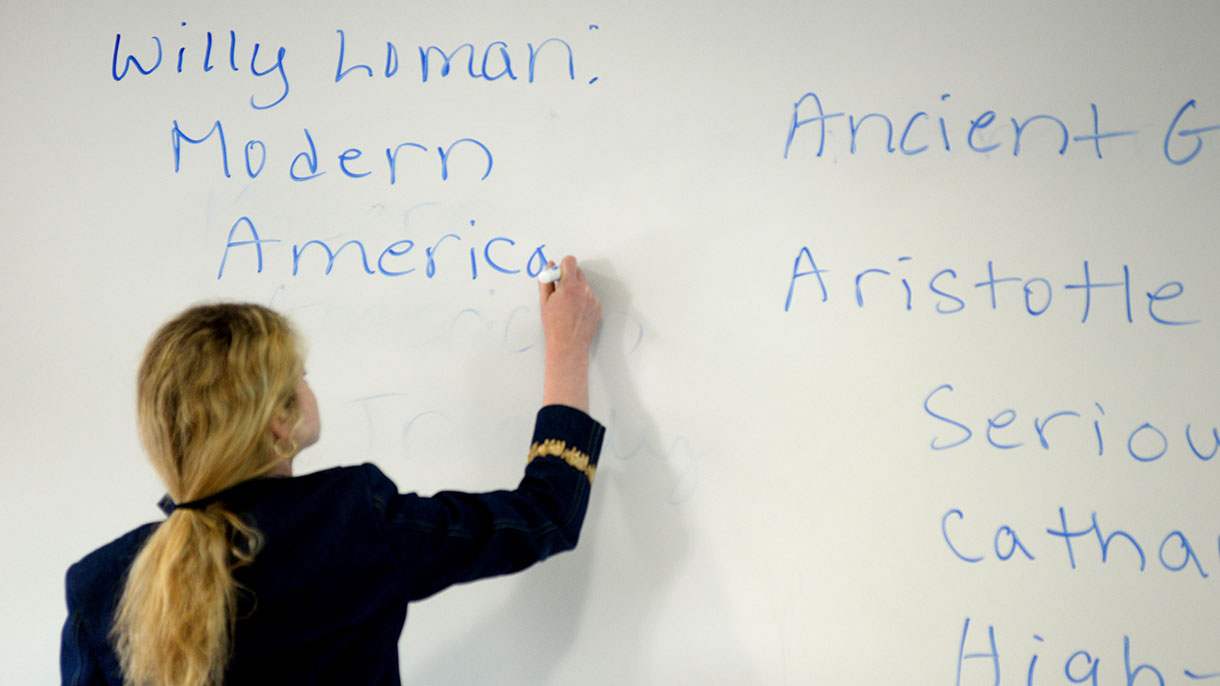 Willy Loman:
Modern
America
Ancient G
Aristotle
Seriou
Cathar
High-